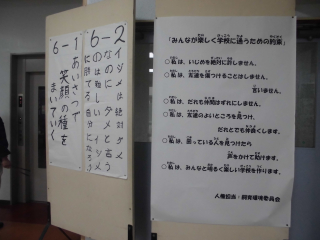 6-1
あいさつで
笑顔の種を
まいていく
6-2
イジメは絶対ダメ
なのにダメと言う
のは難しい
に勝てる自分になろう
「みんなが楽しく学校に通うための約束」
○私は、いじめを絶対に許しません。
○私は、友達を傷つけることはしません。
言いません。
○私は、だれも仲間はずれにしません。
○私は、友達のよいところを見つけ、
だれとでも仲良くします。
○私は、困っている人を見つけたら
声をかけて助けます。
○私は、みんなと明るく楽しい学校を作ります。
人権担当・飼育環境委員会